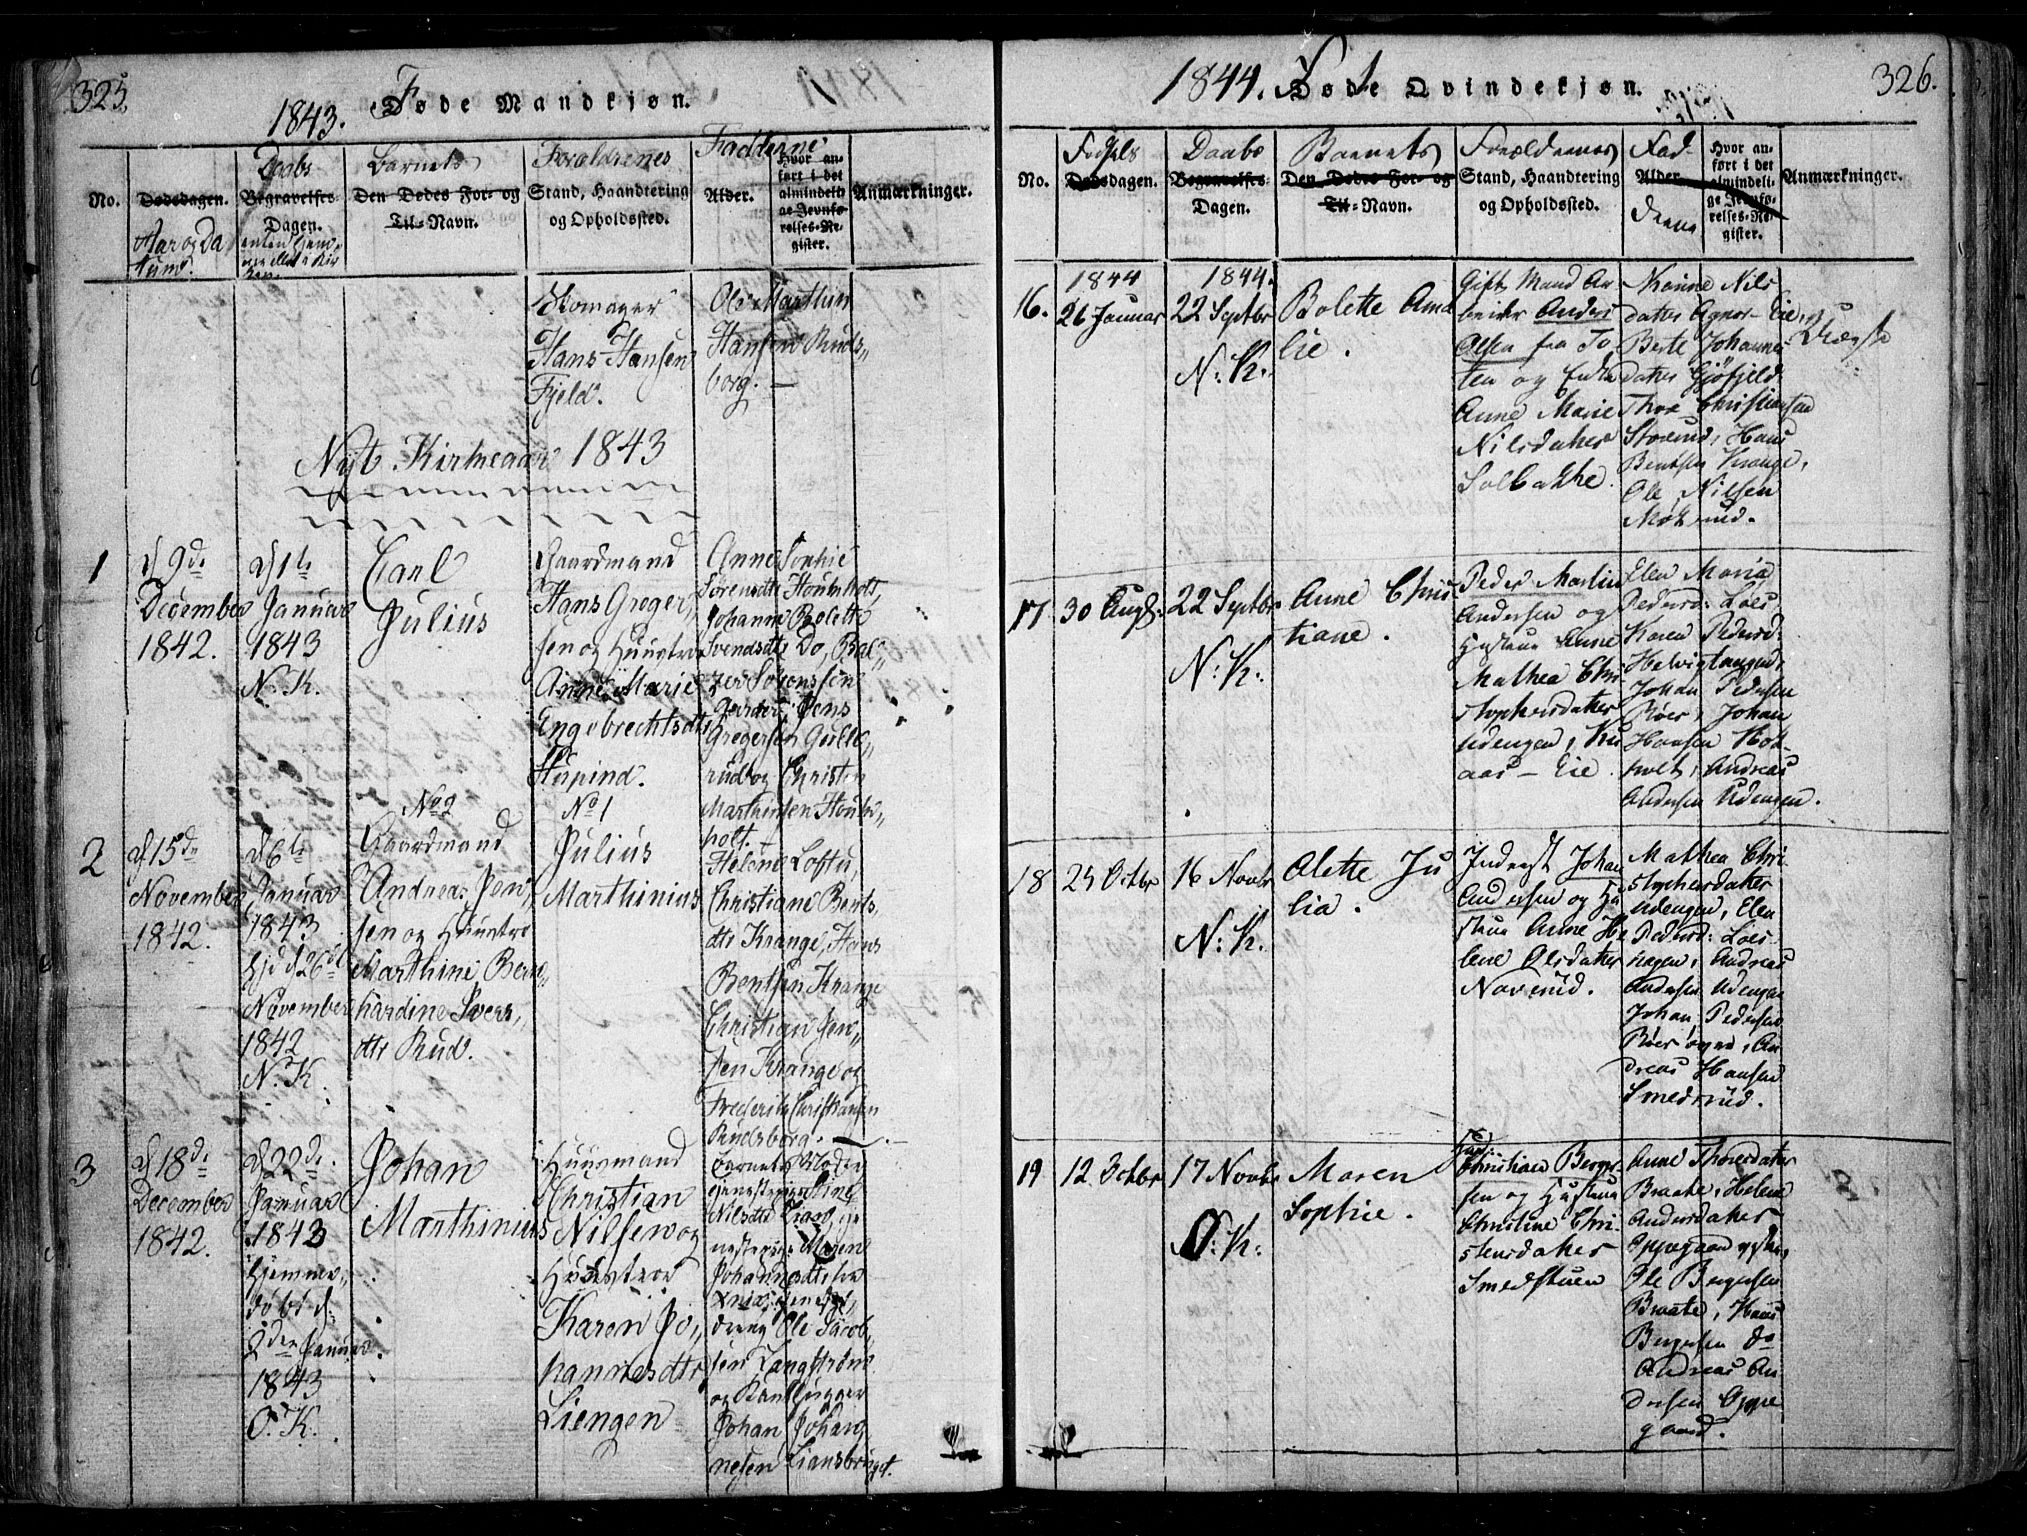 325.
1843. Føde Mandkjøn.
No.
Dødsdagen.
Aar og Da
tum.
Daabs
Begravelses-
Dagen.
Barnets
Den Dødes For- og
Til-Navn.
Forældrenes
Stand, Haandtering
og Opholdssted.
Fadderne
Alder.
Hvor an-
ført i det
almindeli-
ge Jevnfø-
relses-Re-
gister.
Anmærkninger.
Skomager
Hans Hansen
Fjeld.
Ole Marthin
Hansen Ruds„
borg. —
Nyt Kirkeaar 1843
1
d 9de
December
1842.
d 1te
Januar
1843
N. K.
Carl
Julius
Gaardmand
Hans Greger„
sen og Huustro
Anne Marie
Engebrechtsdtr
Stupind.
No 1
Anne Sophie
Sørensdtr Houmholt,
Johanne Bolette
Svendsdtr Do, Bal„
zer Sørenssen
Jens
Gregersen Gulle„
rud og Christen
Marthinsen Houm„
holt.
2
d 15de
November
1842.
d 6te
Januar
1843
Hjd d 26de
November
1842
N. K.
No 2
Gaardmand
Andreas Jen„
sen og Huustro
Marthine Bern„
hardine Ivers„
dtr Rud.
Julius
Marthinius
Helene Loftu,
Christiane Bents„
dtr Krange, Hans
Bentsen Krange
Christian Jen„
sen Krange og
Frederik Christiansen
Rudsborg. —
3
d 18de
December
1842.
d 22de
Januar
1843
Hjemme„
døbt d:
2den Januar
1843
O. K.
Johan
Marthinius
Huusmand
Christian
Nilsen og
Huustroe
Karen Jo„
hannesdtr
Liengen
Barnets Moder
Nilsdtr
Maren
Johannesdtr
Ole Jacob„
sen Langstrøm
og
Johan Johan„
nesen Liansbriget.
1844. Føde Qvindekjøn.
326.
No.
Fødsels
Dødsdagen.
Daabs
Begravelses-
Dagen.
Barnets
Den Dødes For- og
Til-Navn.
Forældrenes
Stand, Haandtering
og Opholdssted.
Fad-
Alder.
derne
Hvor an-
ført i det
almindeli-
ge Jevnfø-
relses-Re-
gister.
Anmærkninger.
16.
1844
26 Januar
1844.
22 Septbr
N: K.
Bolette Ama
lie.
Gift Mand Ar
beider Anders
Olsen fra To
ten og Enke
Anne Marie
Nilsdatter
Solbakke.
Karine Nils
datter Agnor-Eie,
Berte Johannes
datter Gjøfjeld
Thor Christiansen
Storrud, Hans
Bentsen Krange,
Ole Nilsen
Mørkrud.
Uægte
17
30 Augs:
22 Septbr
N: K.
Anne Chris
tiane.
Peder Martin
Andersen og
Hustrue Anne
Mathea Chri
stophersdatter
Udengen, Ku
aas – Eie.
Elen Maria
Pedersd: Loes
Karen Pedersd:
Helvigtangend,
Johan Pedersen
Røer, Johan
Hansen Kok-
holt, Andreas
Andersen Udengen.
18
25 Octbr
16 Novbr
N: K.
Alette Ju
lia.
Inderst Johan
Andersen og Hu
strue Anne He
lene Olsdatter
Noverud.
Mathea Chri
stophersdatter
Udengen, Elen
Pedersd: Loes-
hagen, Andreas
Andersen Udengen
Johan Pedersen
Røer øvre, An
dreas Hansen
Smedsrud.
19
12 Octbr
17 Novbr
O: K:
Maren
Sophie.
Christian Berger
sen og Hustrue
Christine Chri-
stensdatter
Smedstuen
Anne Thoresdatter
Braate, Helene
Andersdatter
Oppegaard
Ole Bergersen
Braate, Hans
Bergersen do
Andreas An
dersen Oppe
gaard.